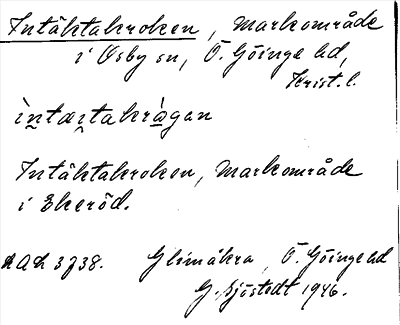 Intäktakroken, Markområde
i Osby sn, Ö. Göinge hd,
Krist. l.
ìn̯tæi̯takrà̱gan
Intäktakroken, Markområde
i Ekeröd.
Glimåkra, Ö. Göinge hd
G. Sjöstedt 1946.